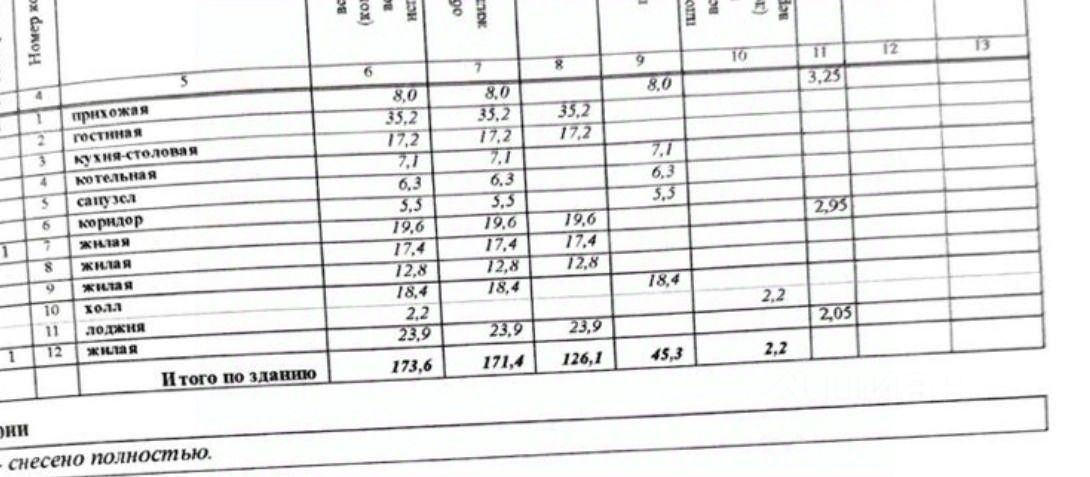 Номер
5 6 7 8 9 10 11 12 13
4
1 прихожая 8,0 8,0 8,0 3,25
2 гостиная 35,2 35,2 35,2
3 кухня-столовая 17,2 17,2 17,2
4 котельная 7,1 7,1 7,1
5 санузел 6,3 6,3 6,3
6 коридор 5,5 5,5 5,5
1 7 жилая 19,6 19,6 19,6 2,95
8 жилая 17,4 17,4 17,4
9 жилая 12,8 12,8 12,8
10 холл 18,4 18,4 18,4
11 лоджия 2,2 2,2
1 12 жилая 23,9 23,9 23,9 2,05
Итого по зданию 173,6 171,4 126,1 45,3 2,2
- снесено полностью.